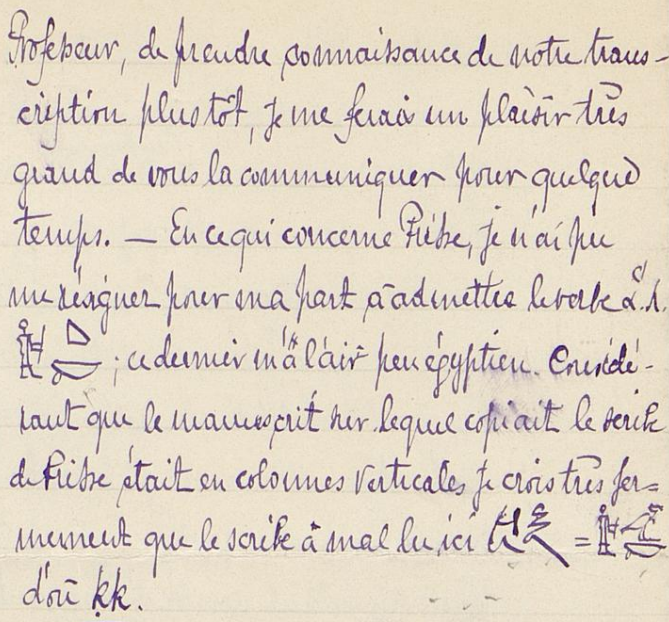 Professeur, de prendre connaissance de notre trans-
cription plus tôt, je me ferais un plaisir très
grand de vous la communiquer pour quelque
temps. — En ce qui concerne Prisse, je n'ai pu
me résigner pour ma part à admettre le verbe
; ce dernier m'a l'air peu égyptien. Considé-
rant que le manuscrit sur lequel copiait le scribe
de Prisse était en colonnes verticales je crois très fer-
mement que le scribe a mal lu ici =
d'où ḳk.